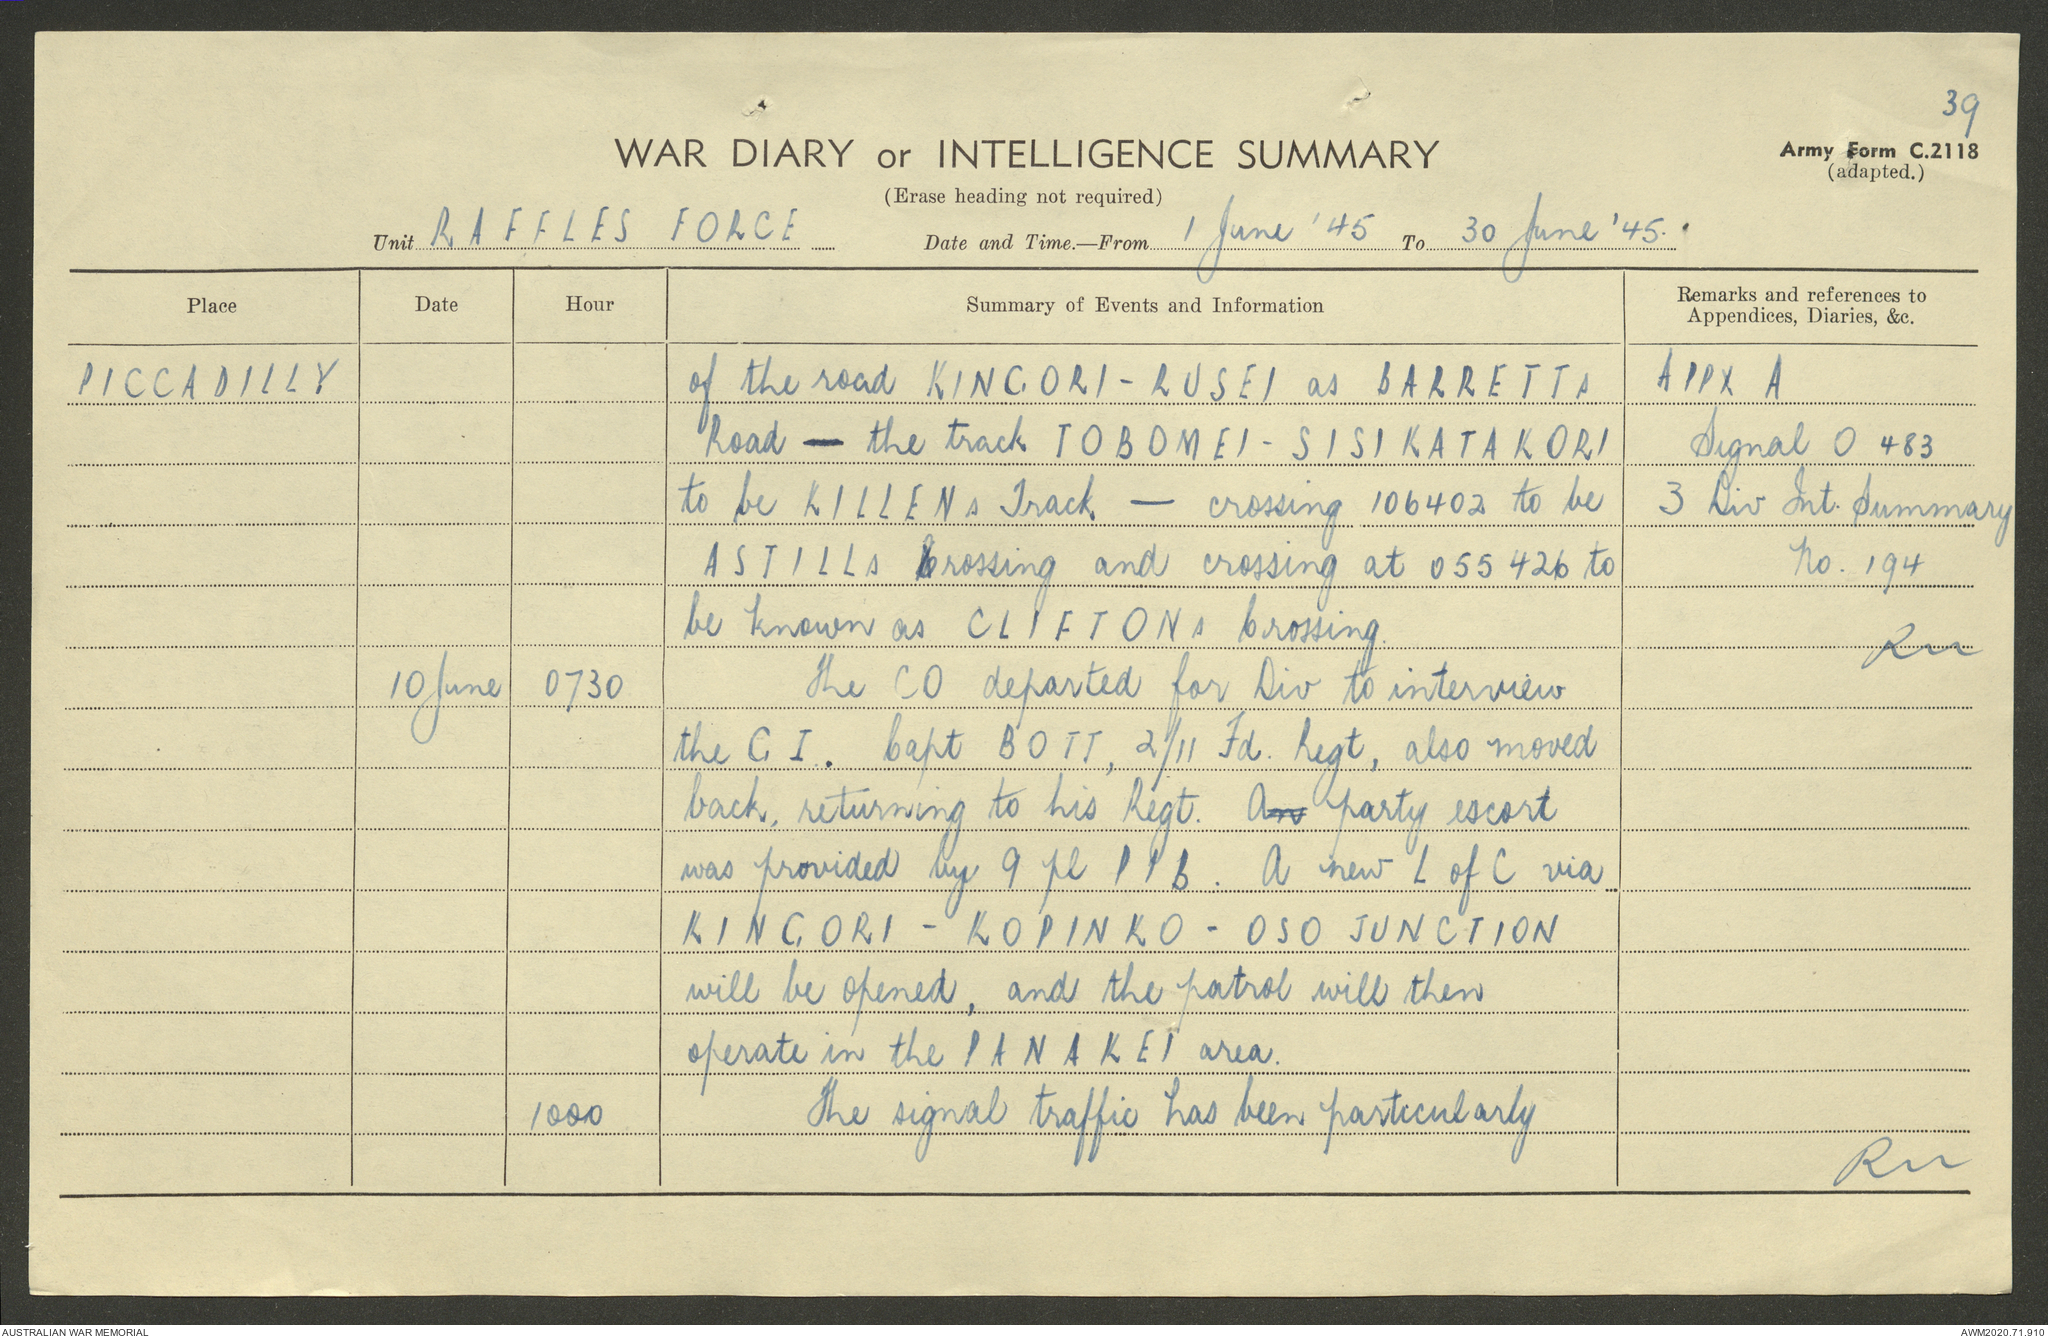 39
WAR DIARY or INTELLIGENCE SUMMARY
Army Form C.2118
(adapted.)
(Erase heading not required)
Unit RAFFLES FORCE Date and Time.—From 1 June '45 To 30 June '45.
Place Date Hour Summary of Events and Information Remarks and references to
Appendices, Diaries, &c.
PICCADILLY of the road KINGORI - RUSEI as BARRETTs APPX A
Road — the track TOBOMEI - SISIKATAKORI Signal O 483
to be KILLENs Track — crossing 106402 to be 3 Div Int. Summary
ASTILLs Crossing and crossing at 055426 to No. 194
be known as CLIFTONs Crossing.
10 June 0730 The CO departed for Div to interview
the G I. Capt BOTT, 2/11 Fd. Regt, also moved
back, returning to his Regt. A party escort
was provided by 9 pl PIB. A new L of C via
KINGORI - KOPINKO - OSO JUNCTION
will be opened, and the patrol will then
operate in the PANAKEI area.
1000 The signal traffic has been particularly
AUSTRALIAN WAR MEMORIAL
AWM2020.71.910